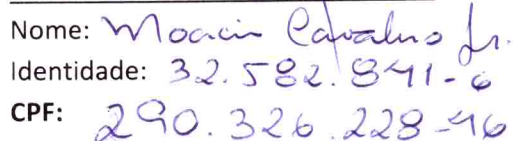 Nome: Moacir Cavalheiro Jr.
Identidade: 32.582.841-6
CPF: 290.326.228-46